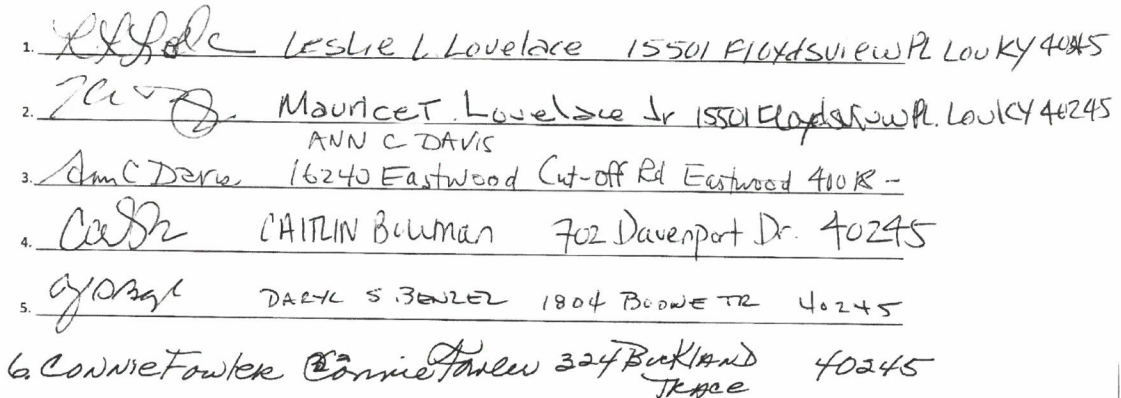 1. Leslie L. Lovelace 15501 Floydsview Pl Lou KY 40245
2. Maurice T. Lovelace Jr 15501 Floydsview Pl. Lou KY 40245
ANN C DAVIS
3. Ann C Davis 16240 Eastwood Cut-off Rd Eastwood 40018 -
4. CAITLIN Bowman 702 Davenport Dr. 40245
5. DARYL S. BENZEL 1804 BOONE TR 40245
6. CONNIE FOWLER Connie Fowler 324 BUCKLAND 40245
TRACE